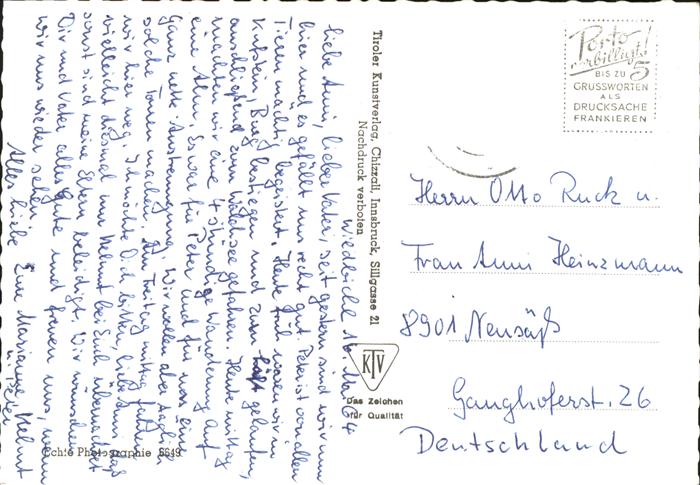 Wiedbichl 16. 64
liebe Anni, lieber Vater, seit gestern sind wir nun
hier und es gefällt uns recht gut. Peter ist von allen
Tieren mächtig begeistert. Heute früh waren wir in
Kufstein, Burg bestiegen und zum gelaufen,
anschließend zum Walchsee gefahren. Heute mittag
machten wir eine 4 stündige Wanderung auf
eine Alm. Es war für Peter und für uns eine
ganz nette Anstrengung. Wir wollen aber täglich
solche Touren machen. Am Freitag mittag fahren
wir hier weg. Ich möchte Dich bitten, liebe Anni, daß
vielleicht diesmal nur Helmut bei Euch übernachtet
sonst sind meine Eltern beleidigt. Wir wünschen
Dir und Vater alles Gute und freuen uns, wenn
wir uns wieder sehen.
Alles Liebe Eure Marianne, Helmut
u. Peter
Tiroler Kunstverlag, Chizzali, Innsbruck, Sillgasse 21
Nachdruck verboten
KTV
Das Zeichen
für Qualität
Echte Photographie 6649
Porto
verbilligt!
5
BIS ZU
GRUSSWORTEN
ALS
DRUCKSACHE
FRANKIEREN
Herrn Otto Ruck u.
Frau Anni Heinzmann
8901 Neusäß
Ganghoferst. 26
Deutschland